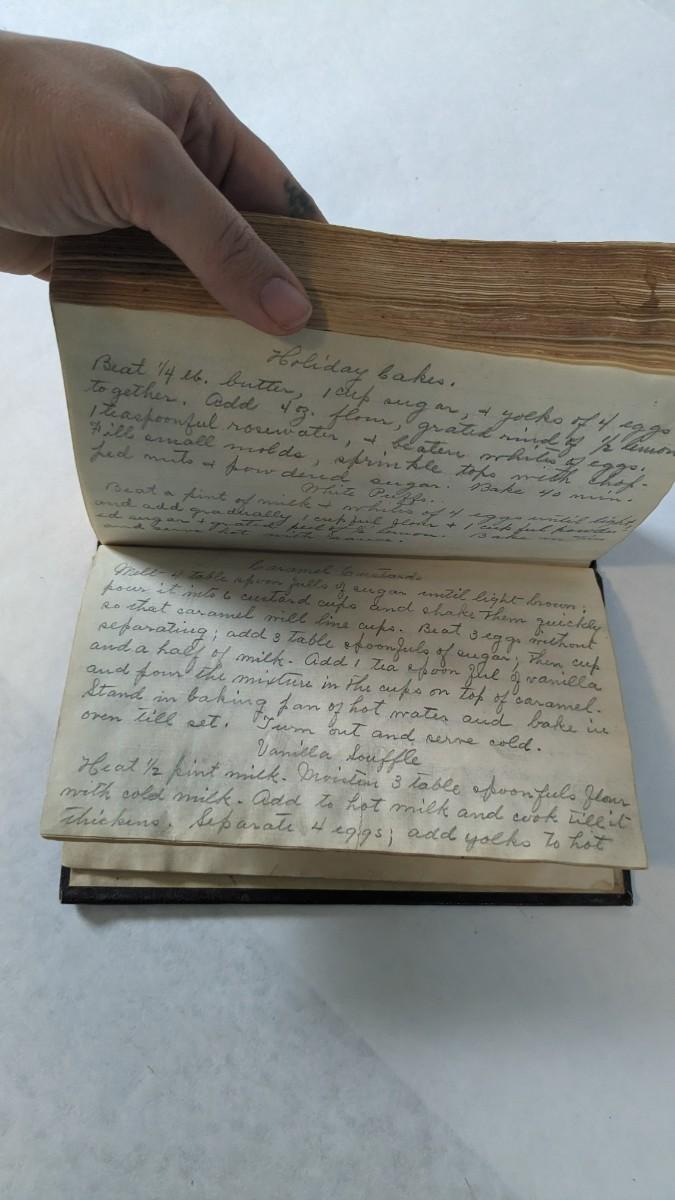 Holiday Cakes.
Beat 1/4 lb. butter, 1 cup sugar, + yolks of 4 eggs
together. Add 4 oz. flour, grated rind of 1/2 lemon
1 teaspoonful rosewater, + beaten whites of eggs.
Fill small molds, sprinkle tops with chop-
ped nuts + powdered sugar. Bake 40 min.
White Puffs.
Beat a pint of milk + whites of 4 eggs until light,
and add gradually 1 cupful flour + 1 cupful powder-
ed sugar + grated peel of 1/2 lemon. Bake in tin
and serve hot with sauce.
Caramel Custards
Melt 4 table spoon fulls of sugar until light brown;
pour it into 6 custard cups and shake them quickly
so that caramel will line cups. Beat 3 eggs without
separating; add 3 table spoonfuls of sugar; then cup
and a half of milk. Add 1 tea spoon ful of vanilla
and pour the mixture in the cups on top of caramel.
Stand in baking pan of hot water and bake in
oven till set. Turn out and serve cold.
Vanilla Souffle
Heat 1/2 pint milk. Moisten 3 table spoonfuls flour
with cold milk. Add to hot milk and cook till it
thickens. Separate 4 eggs; add yolks to hot